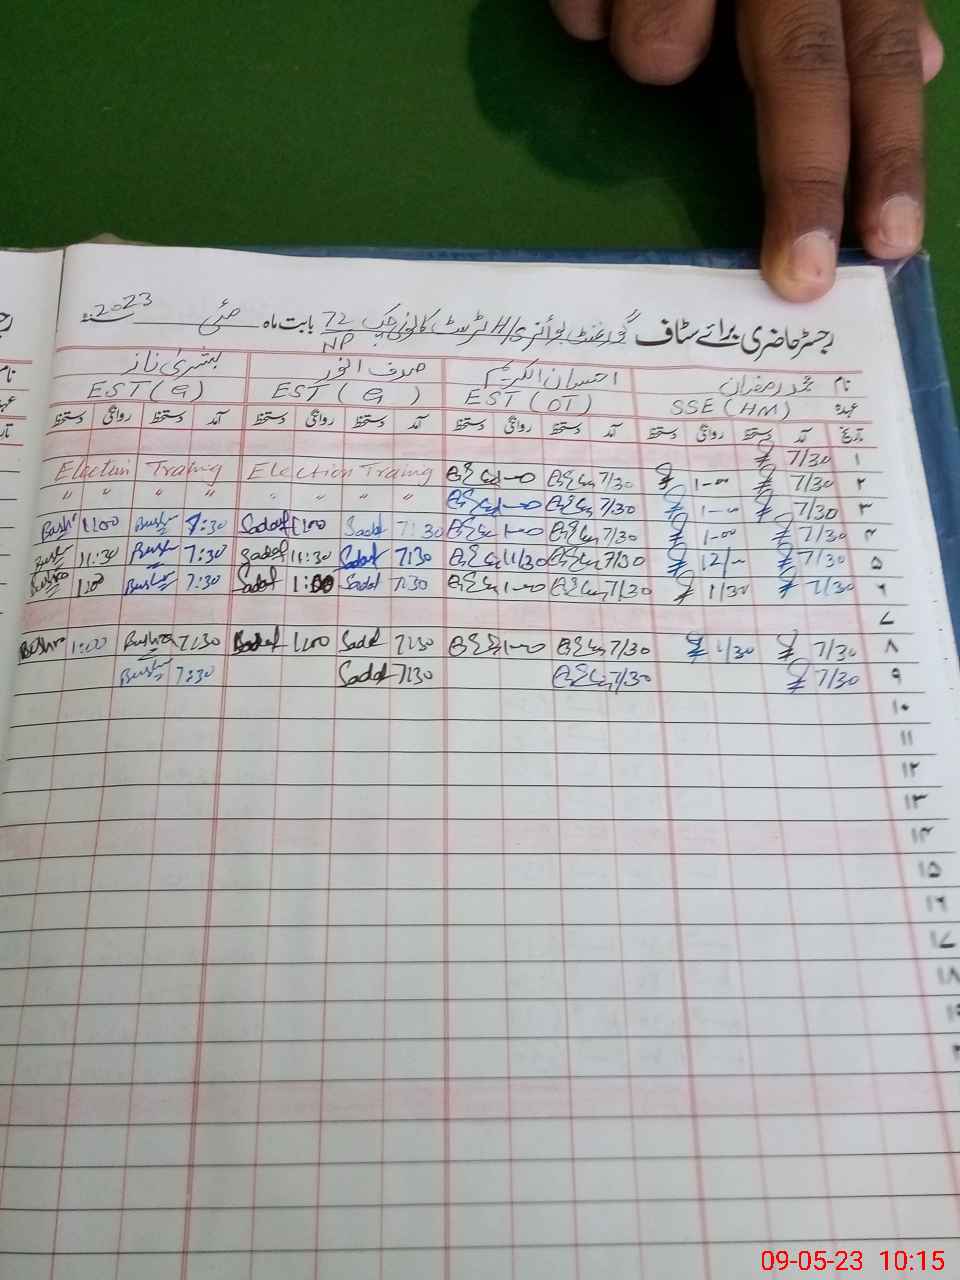 رجسٹر حاضری برائے سٹاف گورنمنٹ بوائز ٹرسٹ کالونی چک 72 NP بابت ماہ مئی 2023
نام محمد رمضان احسان الکریم صدف انور بشریٰ ناز
عہدہ SSE (HM) EST (DT) EST (G) EST (G)
تاریخ آمد دستخط روانگی دستخط آمد دستخط روانگی دستخط آمد دستخط روانگی دستخط آمد دستخط روانگی دستخط
۱ 7/30
۲ 7/30 1-00 7/30 1-00 Election Traing Election Traing
۳ 7/30 1-00 7/30 1-00 " " " " " " " "
۴ 7/30 1-00 7/30 1-00 7:30 Sadaf 1:00 Sadaf 7:30 Bushr 1:00 Bushr
۵ 7/30 12/00 7/30 11/30 7:30 Sadaf 11:30 Sadaf 7:30 Bushr 11:30 Bushr
۶ 7/30 1/30 7/30 1-00 7:30 Sadaf 1:00 Sadaf 7:30 Bushr 1:0 Bushra
۷
۸ 7/30 1/30 7/30 1-00 7:30 Sadaf 1:00 Sadaf 7:30 Bushra 1:00 Bushra
۹ 7/30 7/30 7:30 Sadaf 7:30 Bushr
۱۰
۱۱
۱۲
۱۳
۱۴
۱۵
۱۶
۱۷
۱۸
09-05-23 10:15